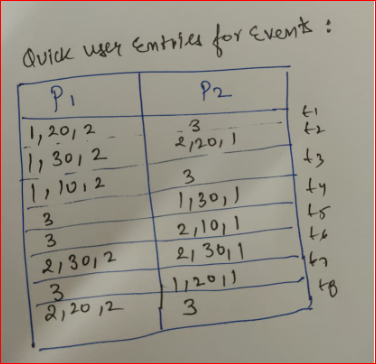 Quick user Entries for Events :
P1 P2
1, 20, 2 3 t1
1, 30, 2 2, 20, 1 t2
1, 10, 2 3 t3
3 1, 30, 1 t4
3 2, 10, 1 t5
2, 30, 2 2, 30, 1 t6
3 1, 20, 1 t7
2, 20, 2 3 t8